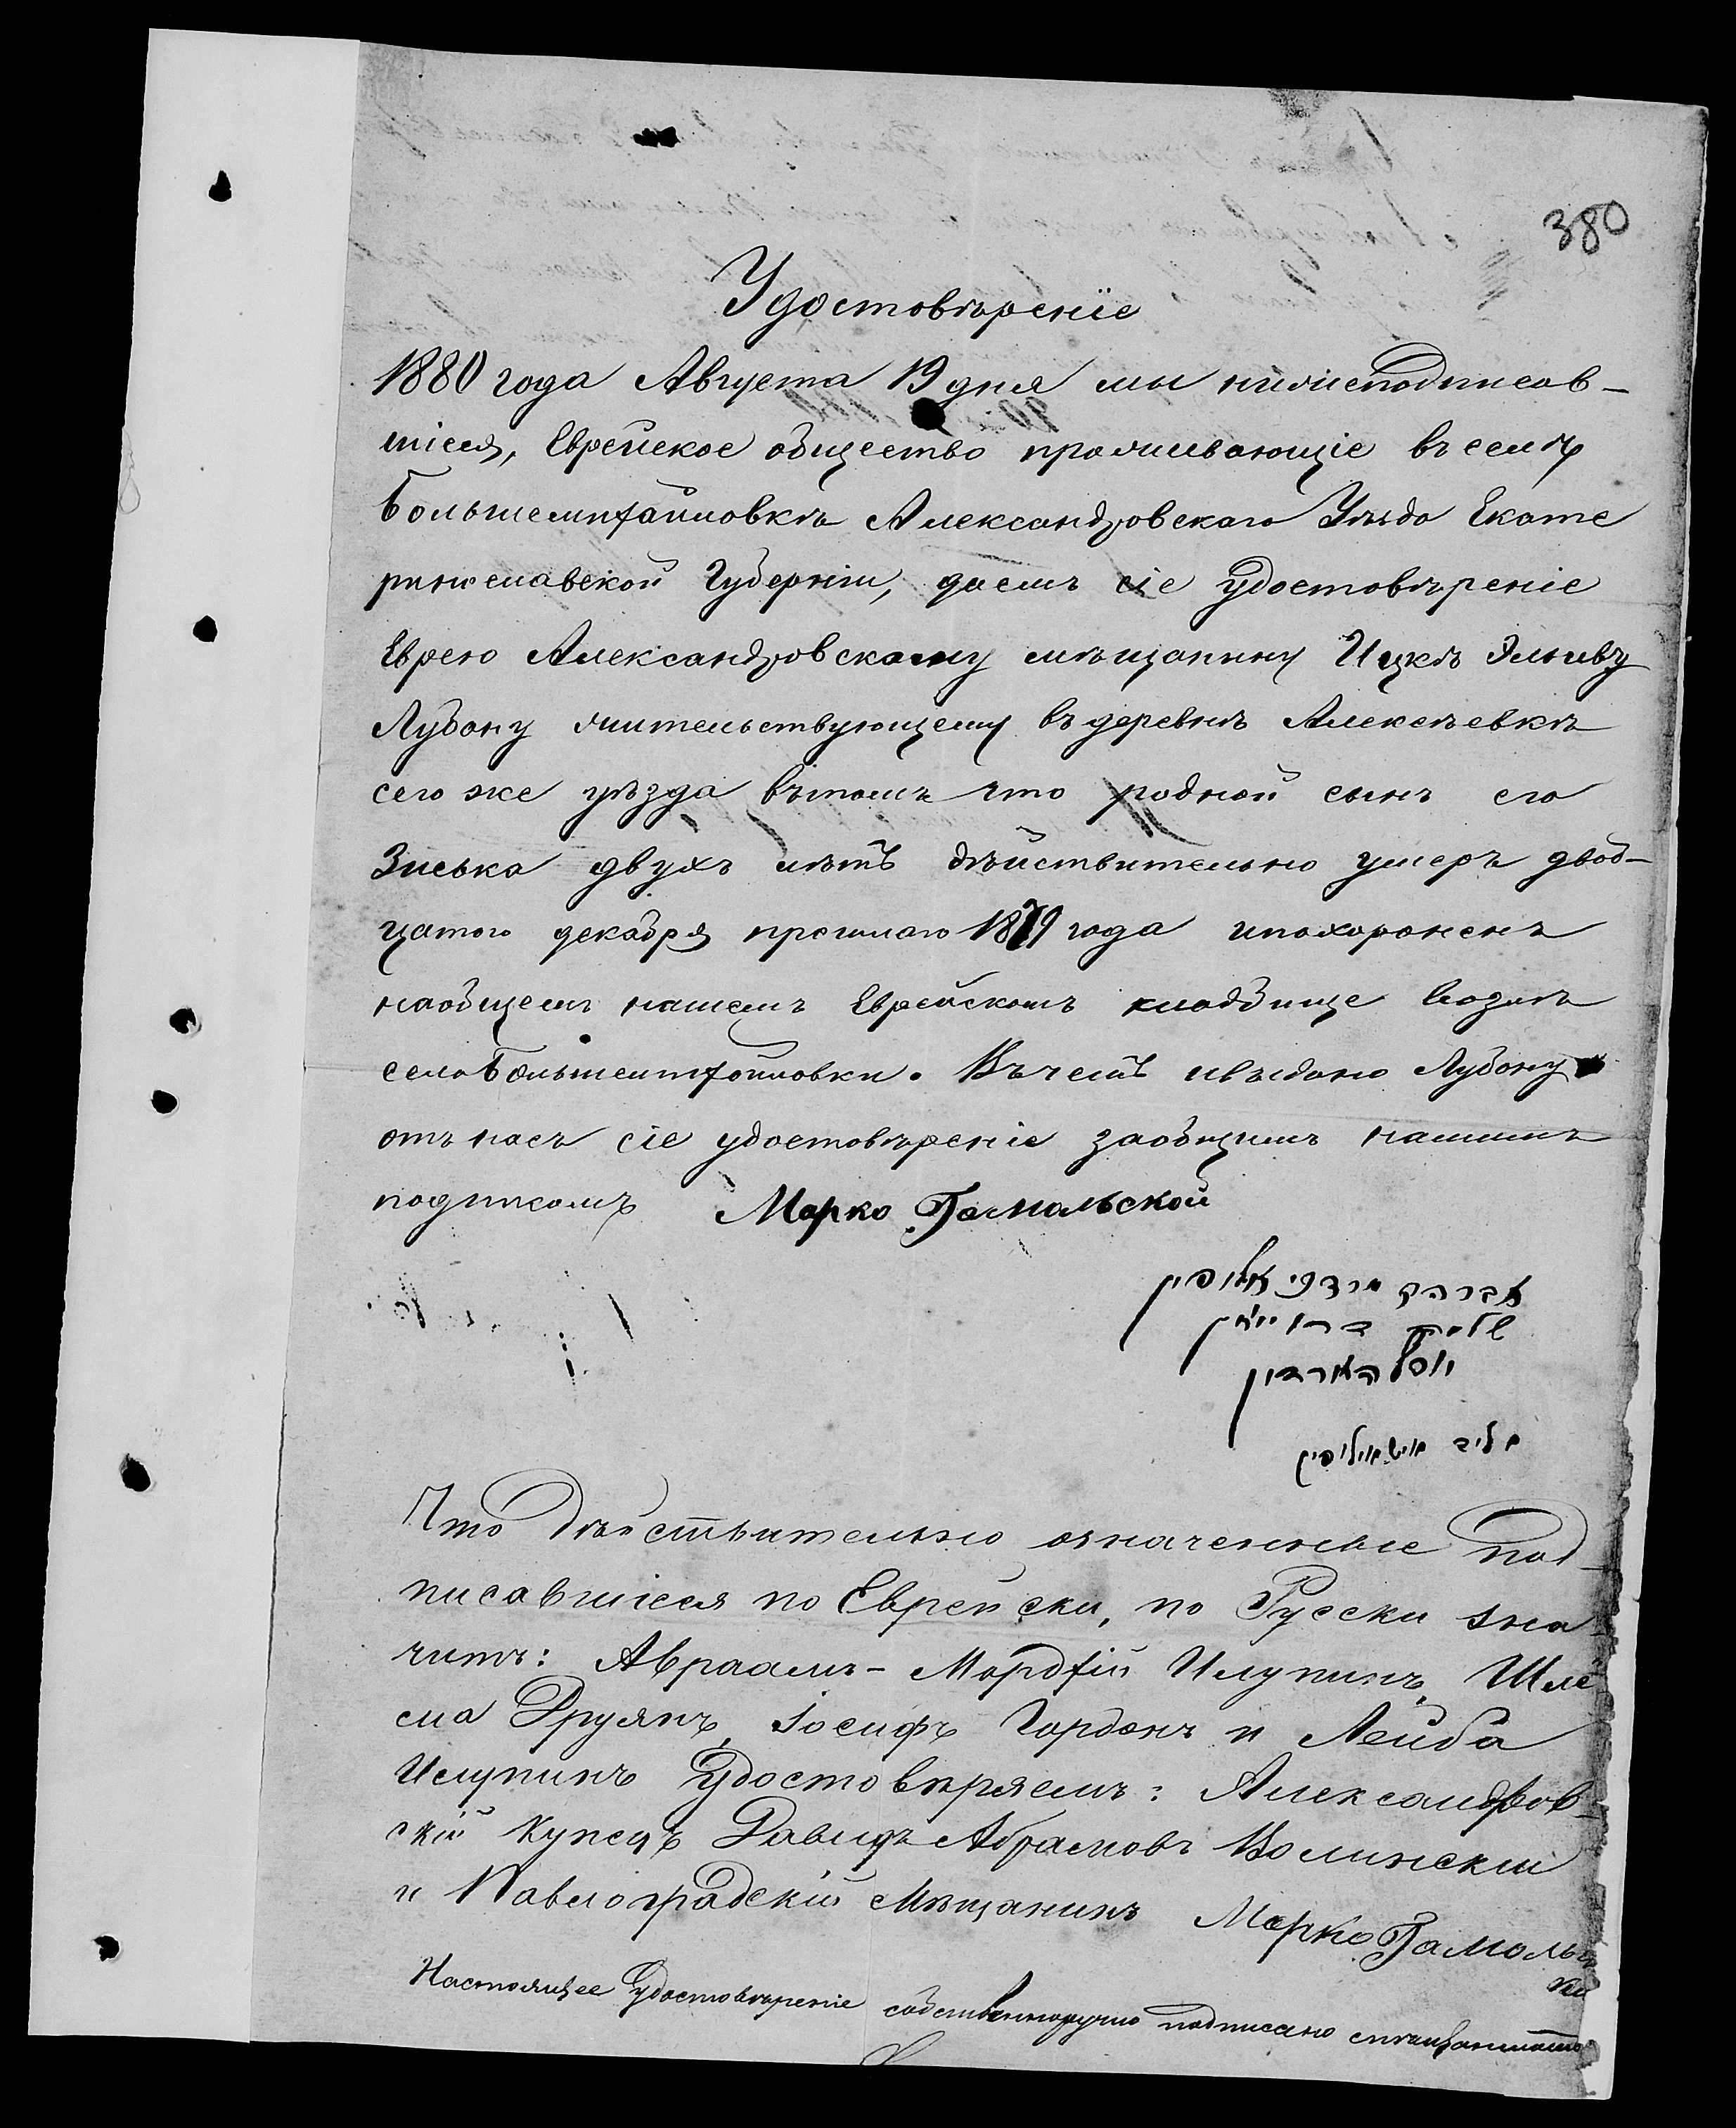 380
Удостовѣреніе
1880 года Августа 19 дня мы нижеподписав-
шіеся, Еврейское общество проживающіе въ селѣ
Большемихайловкѣ Александровскаго Уѣзда Екате
ринославской Губерніи, даемъ сіе удостовѣреніе
Еврею Александровскому мѣщанину Ицкѣ
Лубану жительствующему въ деревнѣ Алексѣевкѣ
сего же уѣзда вътомъ что родной сынъ его
Зиська двухъ лѣтъ дѣйствительно умеръ двад-
цатого декабря прошлаго 1879 года ипохороненъ
наобщемъ нашемъ Еврейскомъ кладбище возлѣ
села Большемихайловки. Въчемъ ивыдано Лубану
отъ насъ сіе удостовѣреніе заобщимъ нашимъ
подписомъ Марко Гамольской
אברהם מרדכי
שלמה דרויאן
יוסף הארדאן
ליב
Что дѣйствительно означенные под-
писавшіеся по Еврейски, по Русски зна-
читъ: Авраамъ-Мордхій Ислупинъ, Шле
ма Друянъ, Іосифъ Гордонъ и Лейба
Ислупинъ Удостовѣряемъ: Александров-
скій купецъ Давидъ Абрамовъ Волинскій
и Павлоградскій Мѣщанинъ Марко Гамольс
кій
Настоящее Удостовѣреніе собственноручно подписано